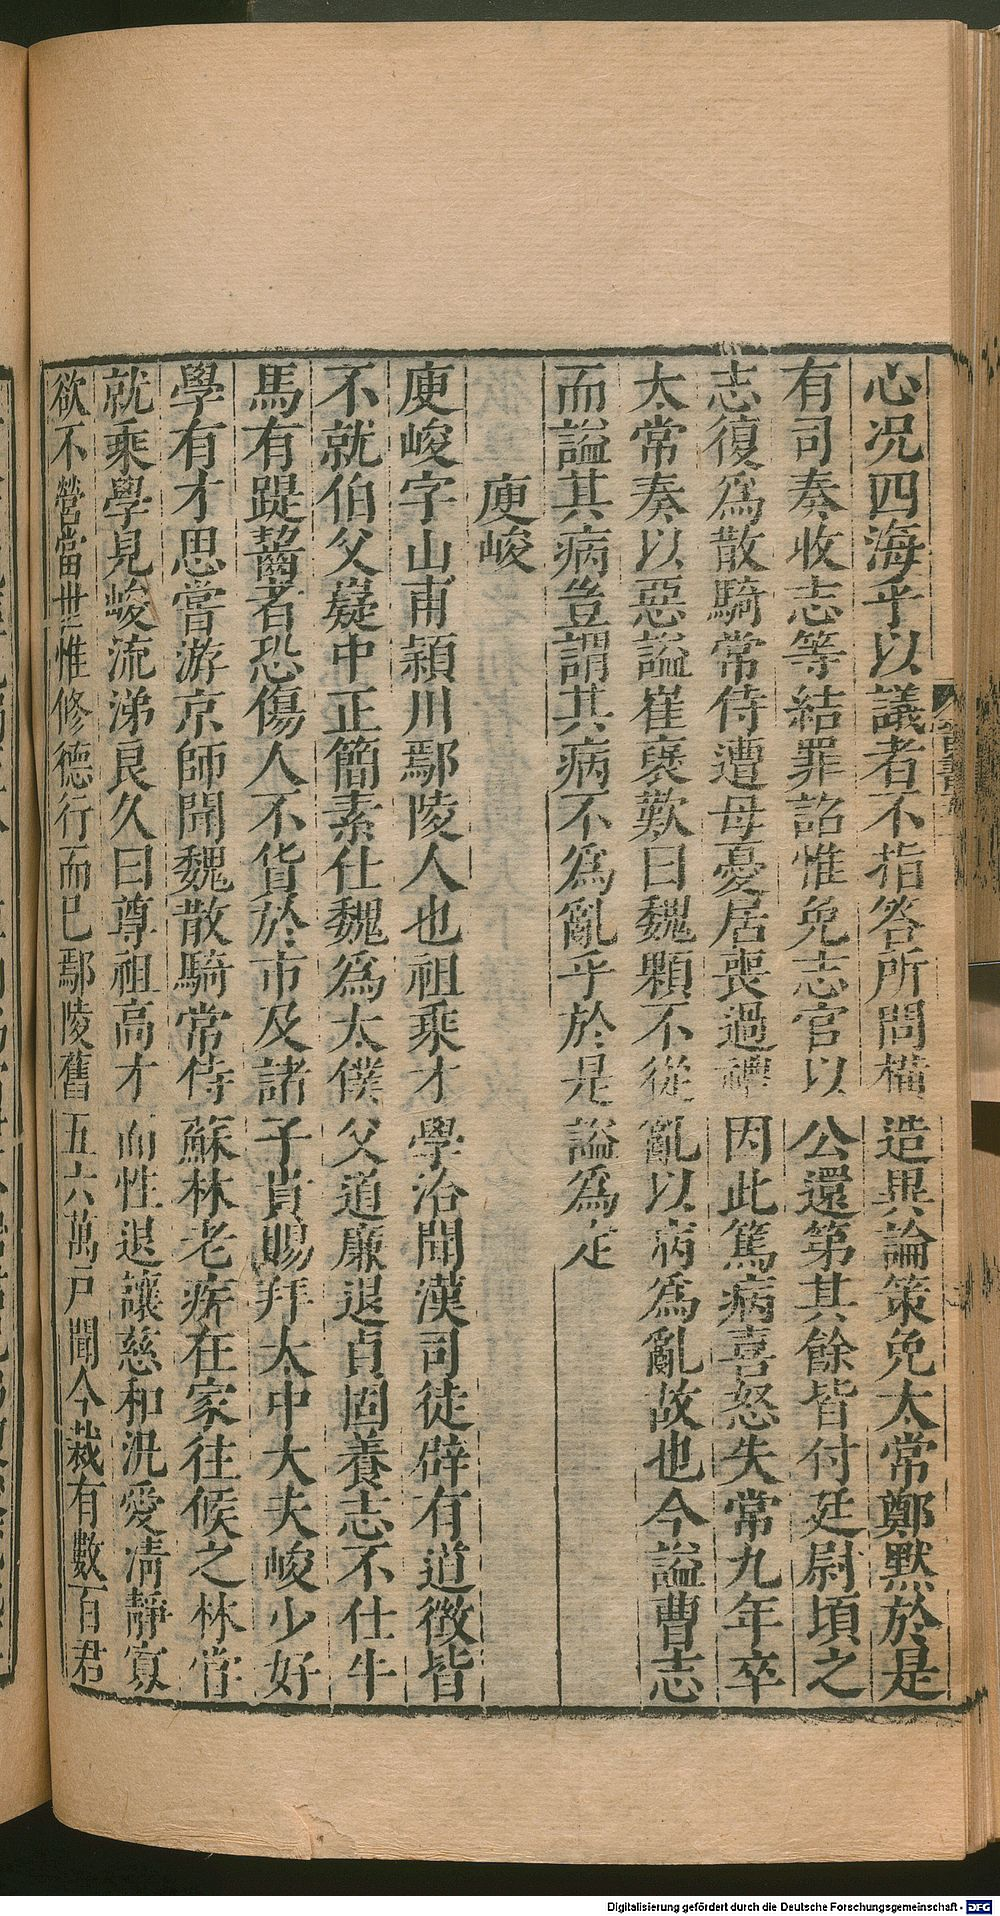 心况四海乎以議者不指答所問橫造異論策免太常鄭默於是
有司奏收志等結罪詔惟免志官以公還第其餘皆付廷尉頃之
志復爲散騎常侍遭母憂居喪過禮因此篤病喜怒失常九年卒
太常奏以惡謚崔褒歎曰魏顆不從亂以病爲亂故也今謚曹志
而謚其病豈謂其病不爲亂乎於是謚爲定
庾峻
庾峻字山甫潁川鄢陵人也祖乘才學洽聞漢司徒辟有道徵皆
不就伯父嶷中正簡素仕魏爲太僕父道廉退貞固養志不仕牛
馬有踶齧者恐傷人不貨於市及諸子貴賜拜太中大夫峻少好
學有才思嘗游京師聞魏散騎常侍蘇林老疾在家往候之林嘗
就乘學見峻流涕良久曰尊祖高才而性退讓慈和汎愛清靜寡
欲不營當世惟修德行而已鄢陵舊五六萬戸聞今裁有數百君
Digitalisierung gefördert durch die Deutsche Forschungsgemeinschaft - DFG